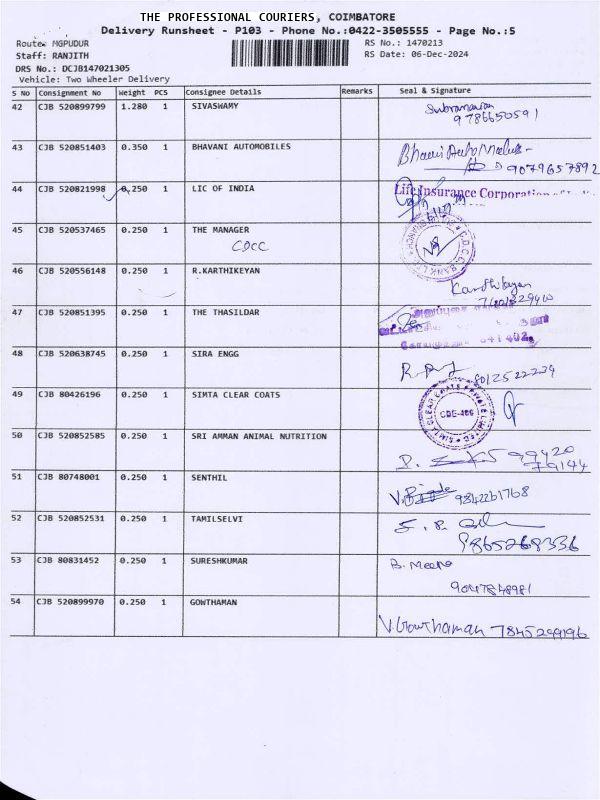 THE PROFESSIONAL COURIERS, COIMBATORE
Delivery Runsheet - P103 - Phone No.:0422-3505555 - Page No.:5
Route: MGPUDUR RS No.: 1470213
Staff: RANJITH RS Date: 06-Dec-2024
DRS No.: DCJB147021305
Vehicle: Two Wheeler Delivery
S No Consignment No Weight PCS Consignee Details Remarks Seal & Signature
42 CJB 520899799 1.280 1 SIVASWAMY Subramanian
9786650591
43 CJB 520851403 0.350 1 BHAVANI AUTOMOBILES Bhavani
9079657892
44 CJB 520821998 0.250 1 LIC OF INDIA Life Insurance Corporation
45 CJB 520537465 0.250 1 THE MANAGER
CDCC
46 CJB 520556148 0.250 1 R.KARTHIKEYAN Karthikeyan
47 CJB 520851395 0.250 1 THE THASILDAR
641 402
48 CJB 520638745 0.250 1 SIRA ENGG 8012522239
49 CJB 80426196 0.250 1 SIMTA CLEAR COATS SIMTA CLEAR COATS PRIVATE LIMITED
CBE-
50 CJB 520852585 0.250 1 SRI AMMAN ANIMAL NUTRITION 99420
79144
51 CJB 80748001 0.250 1 SENTHIL 9842261768
52 CJB 520852531 0.250 1 TAMILSELVI
9865268336
53 CJB 80831452 0.250 1 SURESHKUMAR B. Meena
9047848981
54 CJB 520899970 0.250 1 GOWTHAMAN V.Gowthaman 7845299196